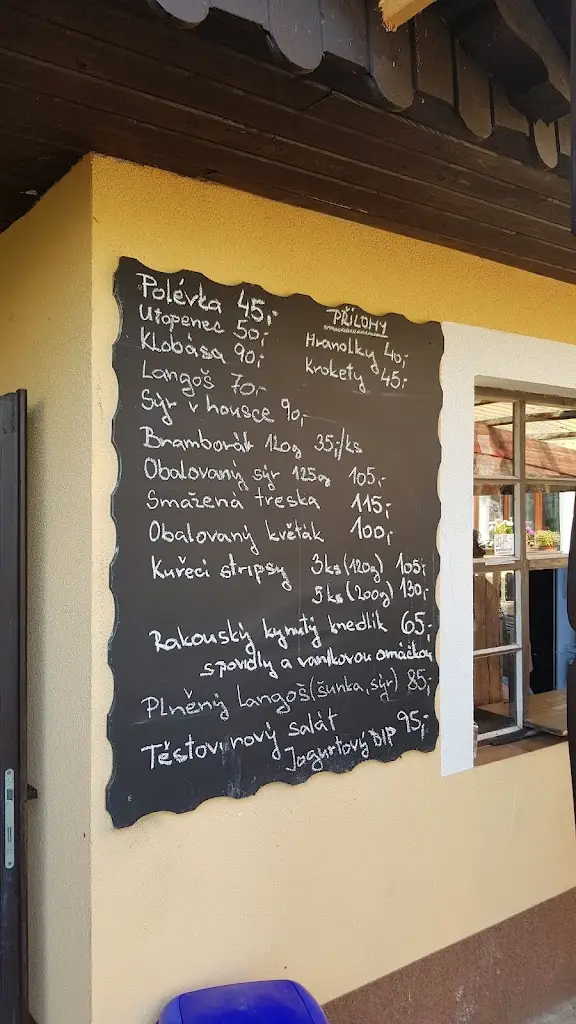 Polévka 45,-
Utopenec 50,-
Klobása 90,-
Langoš 70,-
Sýr v housce 90,-
PŘÍLOHY
Hranolky 40,-
Krokety 45,-
Bramborák 120g 35,-/ks
Obalovaný sýr 125g 105,-
Smažená treska 115,-
Obalovaný květák 100,-
Kuřecí stripsy 3ks (120g) 105,-
5ks (200g) 130,-
Rakouský kynutý knedlík 65,-
s povidly a vanilkovou omáčkou
Plněný Langoš (šunka, sýr) 85,-
Těstovinový salát 95,-
Jogurtový DIP